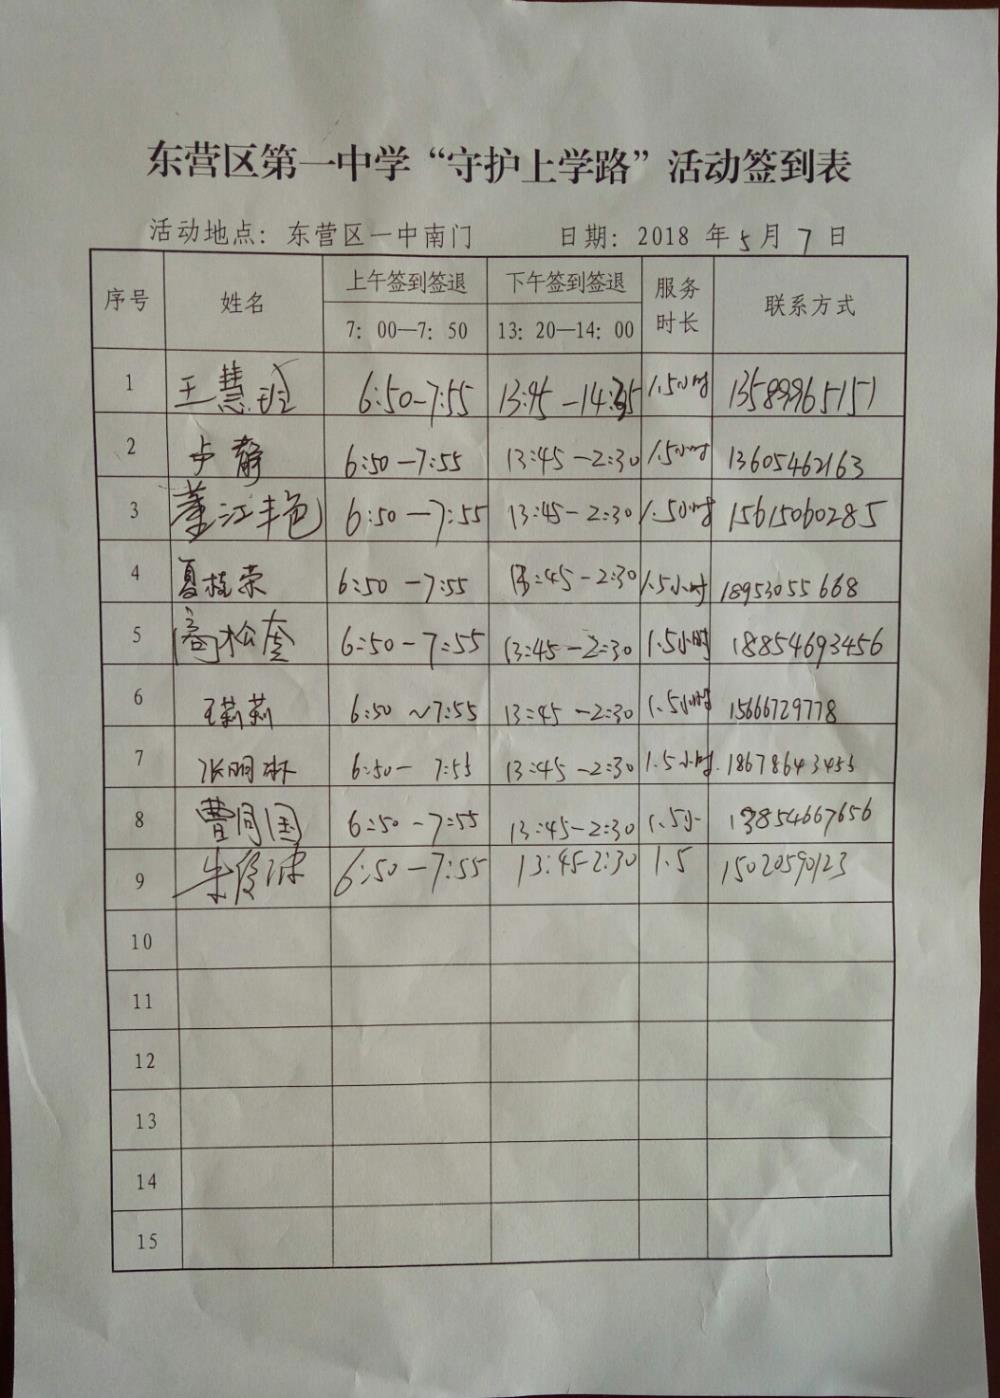 东营区第一中学“守护上学路”活动签到表
活动地点：东营区一中南门 日期：2018 年 5 月 7 日
序号 姓名 上午签到签退 下午签到签退 服务时长 联系方式
7：00—7：50 13：20—14：00
1 王慧玲 6:50-7:55 13:45-14:35 1.5小时 13589965151
2 卢静 6:50-7:55 13:45-2:30 1.5小时 13605462163
3 董江丰色 6:50-7:55 13:45-2:30 1.5小时 15615060285
4 夏桂荣 6:50-7:55 13:45-2:30 1.5小时 18953055668
5 高松奎 6:50-7:55 13:45-2:30 1.5小时 18854693456
6 王莉莉 6:50~7:55 13:45-2:30 1.5小时 15666729778
7 张明林 6:50-7:55 13:45-2:30 1.5小时 18678643455
8 曹同国 6:50-7:55 13:45-2:30 1.5小 13854667656
9 6:50-7:55 13:45-2:30 1.5 15020590123
10
11
12
13
14
15